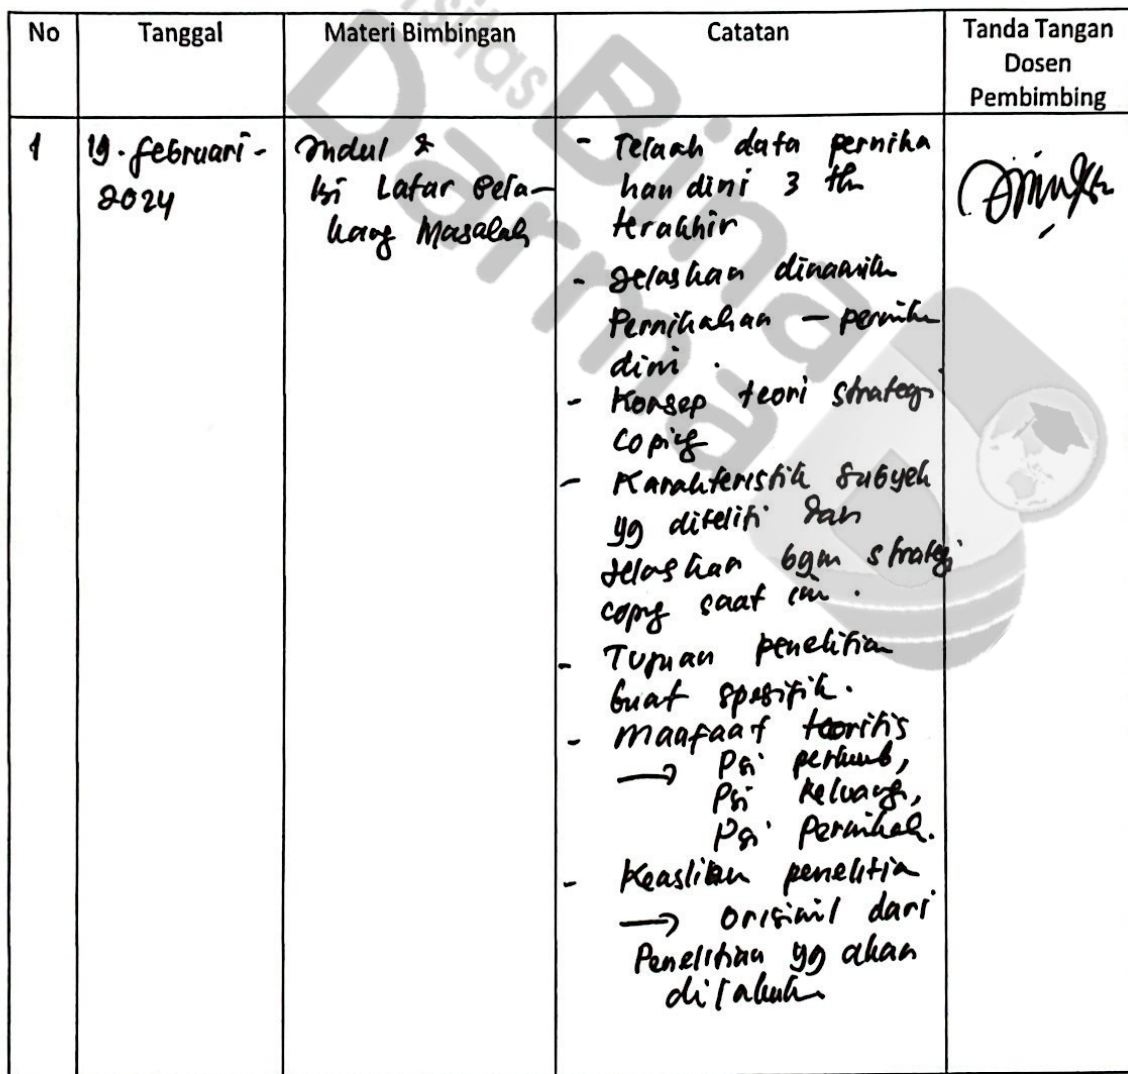 No Tanggal Materi Bimbingan Catatan Tanda Tangan
Dosen
Pembimbing
1 19. februari -
2024
Judul &
isi Latar Bela-
kang Masalah
- Telaah data pernika
han dini 3 th
terakhir
- Jelaskan dinamik
Pernikahan — pernikh
dini .
- Konsep teori strategi
coping
- Karakteristik subyek
yg diteliti dan
Jelaskan bgm strategi
copig saat ini .
- Tujuan penelitian
buat spesifik.
- Manfaat teoritis
→ Psi perkemb,
Psi keluarga,
Psi Pernikah.
- Keaslian penelitia
→ orisinil dari
Penelitian yg akan
dilakuk
Universitas
Bina
Darma